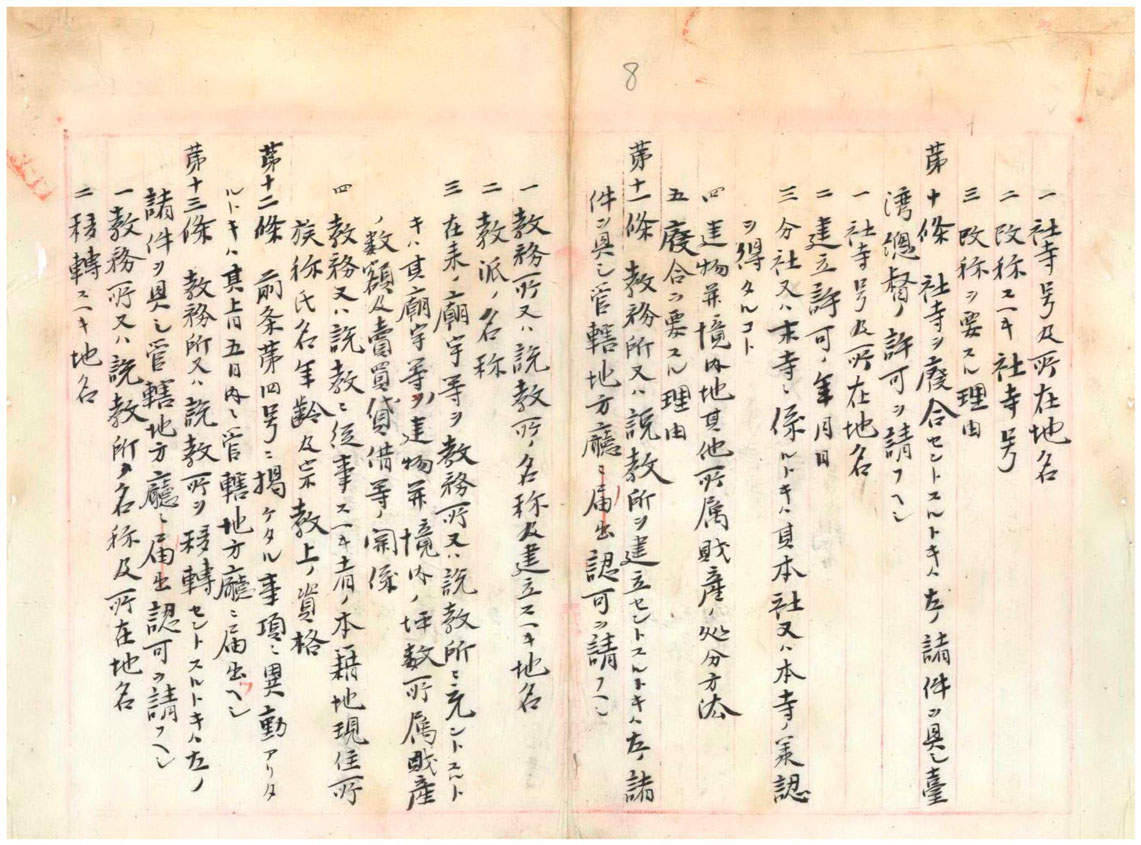 8
一 社寺号及所在地名
二 改称スヘキ社寺号
三 改称ヲ要スル理由
第十條 社寺ヲ廢合セントスルトキハ左ノ諸件ヲ具シ臺
湾總督ノ許可ヲ請フヘシ
一 社寺号及所在地名
二 建立許可ノ年月日
三 分社又ハ末寺ニ係ルトキハ其本社又ハ本寺ノ承認
ヲ得タルコト
四 建物并境内地其他所属財産ノ処分方法
五 廢合ヲ要スル理由
第十一條 教務所又ハ説教所ヲ建立セントスルトキハ左ノ諸
件ヲ具シ管轄地方廳ニ届出認可ヲ請フヘシ
一 教務所又ハ説教所ノ名称及建立スヘキ地名
二 教派ノ名称
三 在来ノ廟宇等ヲ教務所又ハ説教所ニ充ントスルト
キハ其廟宇等ノ建物并境内ノ坪数所属財産
ノ数額及賣買貸借等ノ関係
四 教務又ハ説教ニ従事スヘキ者ノ本籍地現住所
族称氏名年齢及宗教上ノ資格
第十二條 前条第四号ニ掲ケタル事項ニ異動アリタ
ルトキハ其上旬五日内ニ管轄地方廳ニ届出ヘシ
第十三條 教務所又ハ説教所ヲ移轉セントスルトキハ左ノ
諸件ヲ具シ管轄地方廳ニ届出認可ヲ請フヘシ
一 教務所又ハ説教所ノ名称及所在地名
二 移轉スヘキ地名